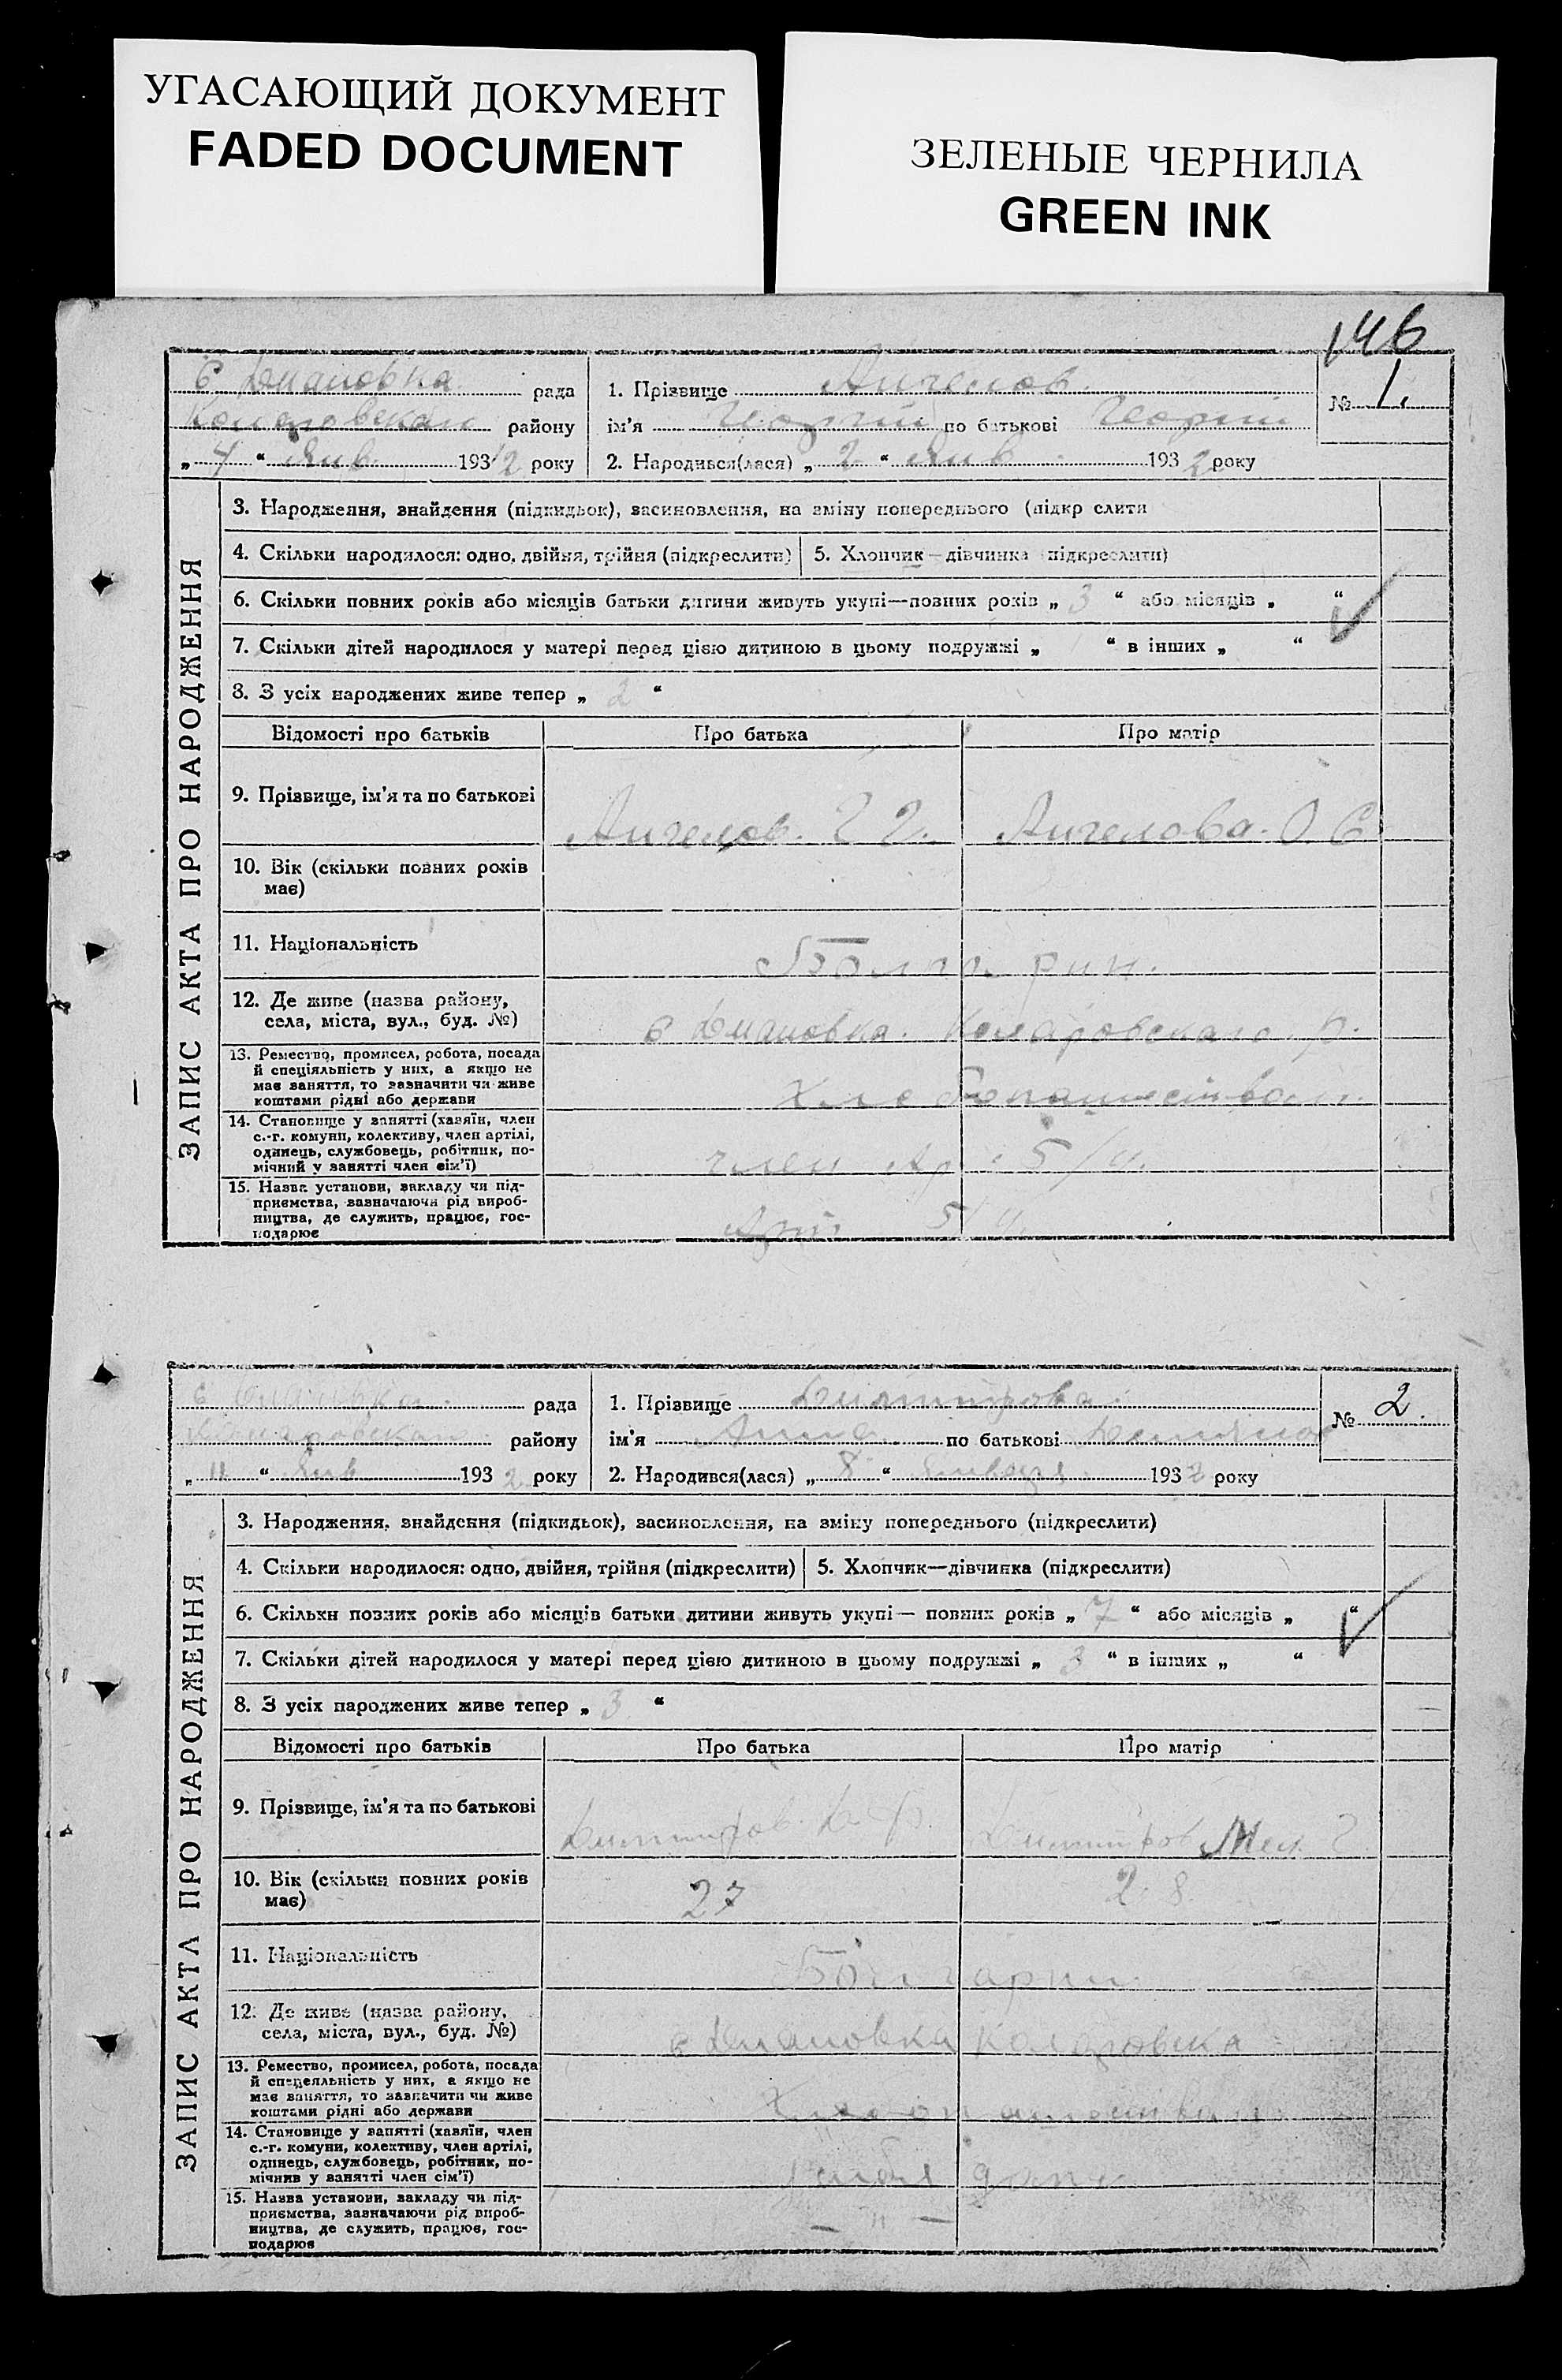 УГАСАЮЩИЙ ДОКУМЕНТ
FADED DOCUMENT
ЗЕЛЕНЫЕ ЧЕРНИЛА
GREEN INK
146
рада
району
„ 4 “ Янв 1932 року
1. Прізвище Ангелов.
ім'я по батькові
2. Народився(лася) „ 2 “ Янв 1932 року
№ 1.
ЗАПИС АКТА ПРО НАРОДЖЕННЯ
3. Народження, знайдення (підкидьок), засиновлення, на зміну попереднього (підкр слити
4. Скільки народилося: одно, двійня, трійня (підкреслити)
5. Хлопчик—дівчинка підкреслити)
6. Скільки повних років або місяців батьки дитини живуть укупі—повних років „ 3 “ або місяців „ “
7. Скільки дітей народилося у матері перед цією дитиною в цьому подружжі „ “ в інших „ “
8. З усіх народжених живе тепер „ 2 “
Відомості про батьків
Про батька
Про матір
9. Прізвище, ім'я та по батькові
Ангелов. Г Г.
Ангелова. О С
10. Вік (скільки повних років
має)
11. Національність
12. Де живе (назва району,
села, міста, вул., буд. №)
13. Ремество, промисел, робота, посада
й спеціяльність у них, а якщо не
має заняття, то зазначити чи живе
коштами рідні або держави
14. Становище у занятті (хазяїн, член
с.-г. комуни, колективу, член артілі,
одинець, службовець, робітник, по-
мічний у занятті член сім'ї)
член Ар. 5/И.
15. Назва установи, закладу чи під-
приємства, зазначаючи рід вироб-
ництва, де служить, працює, гос-
подарює
5/И.
рада
району
„ 11 “ Янв 1932 року
1. Прізвище Димитрова.
ім'я Анна по батькові
2. Народився(лася) „ 8 “ Января 1932 року
№ 2.
ЗАПИС АКТА ПРО НАРОДЖЕННЯ
3. Народження, знайдення (підкидьок), засиновлення, на зміну попереднього (підкреслити)
4. Скільки народилося: одно, двійня, трійня (підкреслити)
5. Хлопчик—дівчинка (підкреслити)
6. Скільки повних років або місяців батьки дитини живуть укупі— повних років „ 7 “ або місяців „ “
7. Скільки дітей народилося у матері перед цією дитиною в цьому подружжі „ 3 “ в інших „ “
8. З усіх народжених живе тепер „ 3 “
Відомості про батьків
Про батька
Про матір
9. Прізвище, ім'я та по батькові
10. Вік (скільки повних років
має)
27
28
11. Національність
Болгарин.
12. Де живе (назва району,
села, міста, вул., буд. №)
13. Ремество, промисел, робота, посада
й спецеяльність у них, а якщо не
має заняття, то зазначити чи живе
коштами рідні або держави
14. Становище у занятті (хазяїн, член
с.-г. комуни, колективу, член артілі,
одинець, службовець, робітник, по-
мічнив у занятті член сім'ї)
15. Назва установи, закладу чи під-
приємства, зазначаючи рід вироб-
ництва, де служить, працює, гос-
подарює
— " —